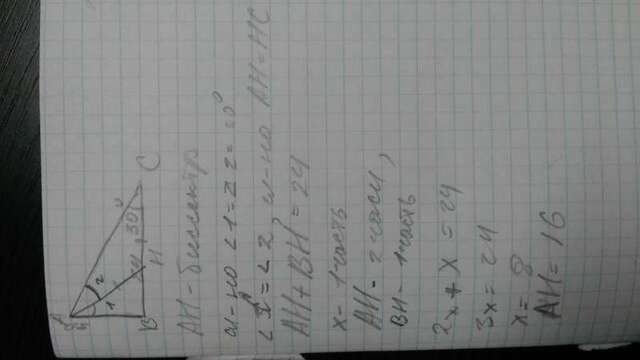 A
B
1
2
H
30°
C
AH - биссектр
∠1 = ∠2 =
∠1 = ∠2, AH = HC
AH + BH = 24
x - 1 часть
AH - 2 части,
BH - 1 часть
2x + x = 24
3x = 24
x = 8
AH = 16